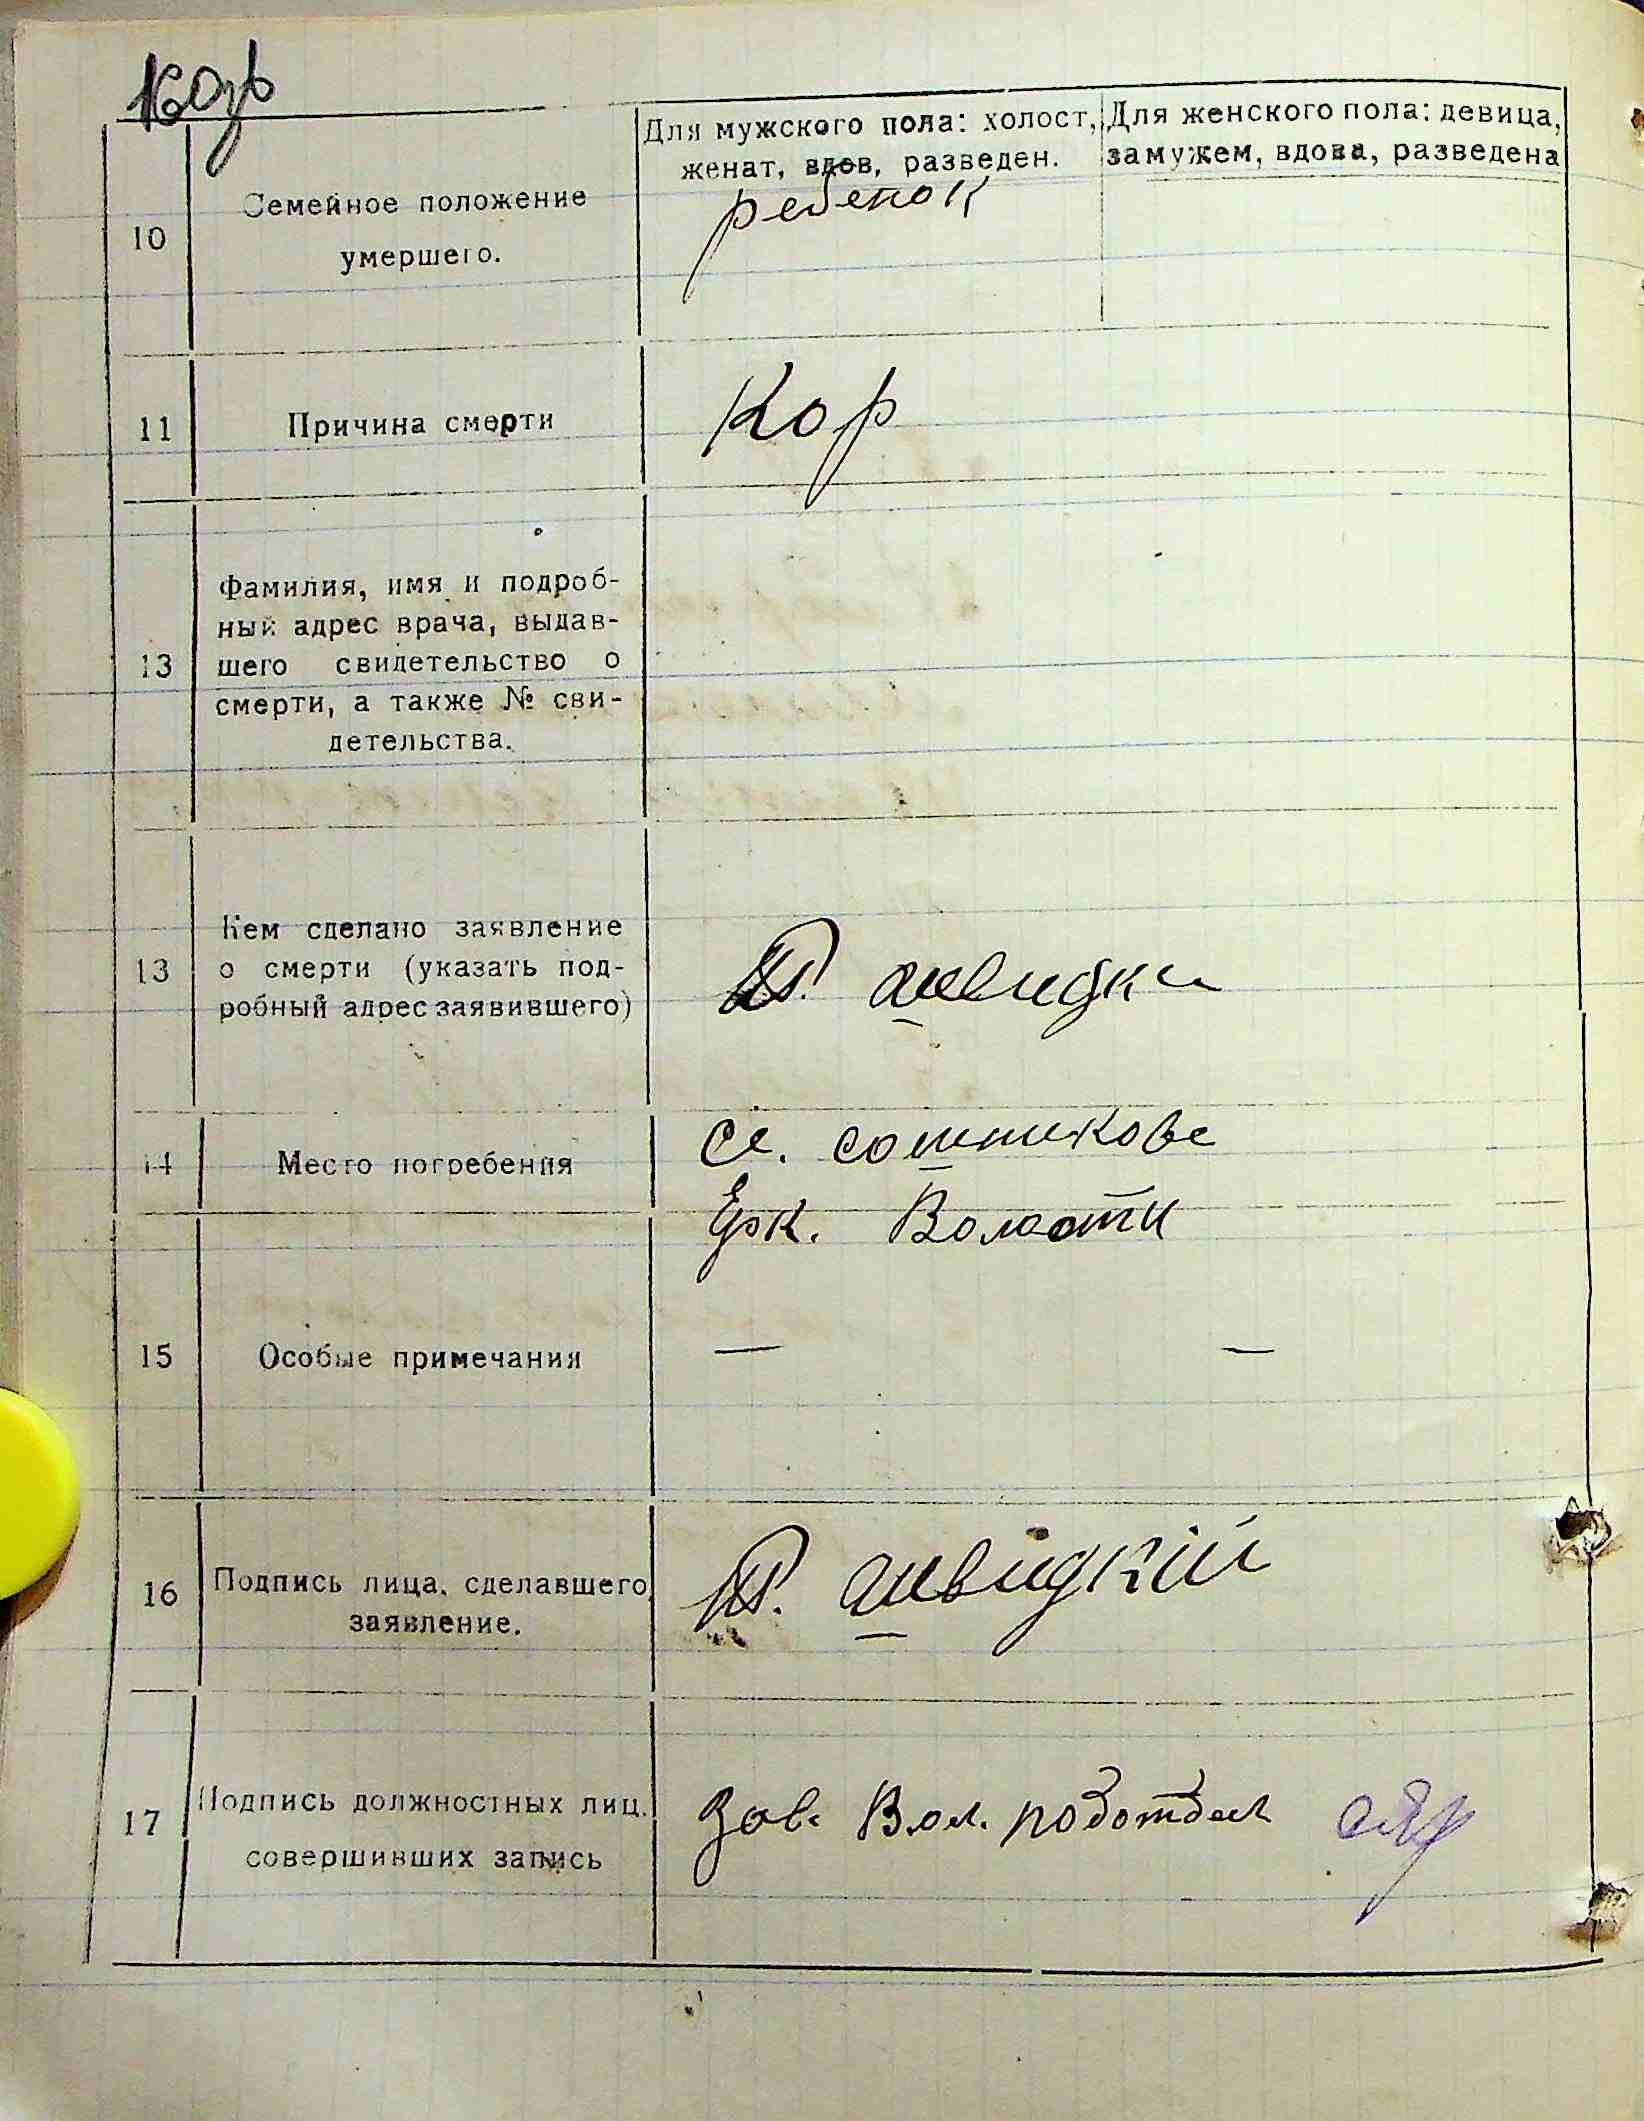 Для мужского пола: холост,
женат, вдов, разведен.
Для женского пола: девица,
замужем, вдова, разведена
10
Семейное положение
умершего.
ребенок
11
Причина смерти
Кор
13
Фамилия, имя и подроб-
ный адрес врача, выдав-
шего свидетельство о
смерти, а также № сви-
детельства.
13
Кем сделано заявление
о смерти (указать под-
робный адрес заявившего)
швидки
14
Место погребения
Сл. сотникове
Ерк. Волости
15
Особые примечания
— —
16
Подпись лица, сделавшего
заявление.
швідкій
17
Подпись должностных лиц.
совершивших запись
Зав. Вол.